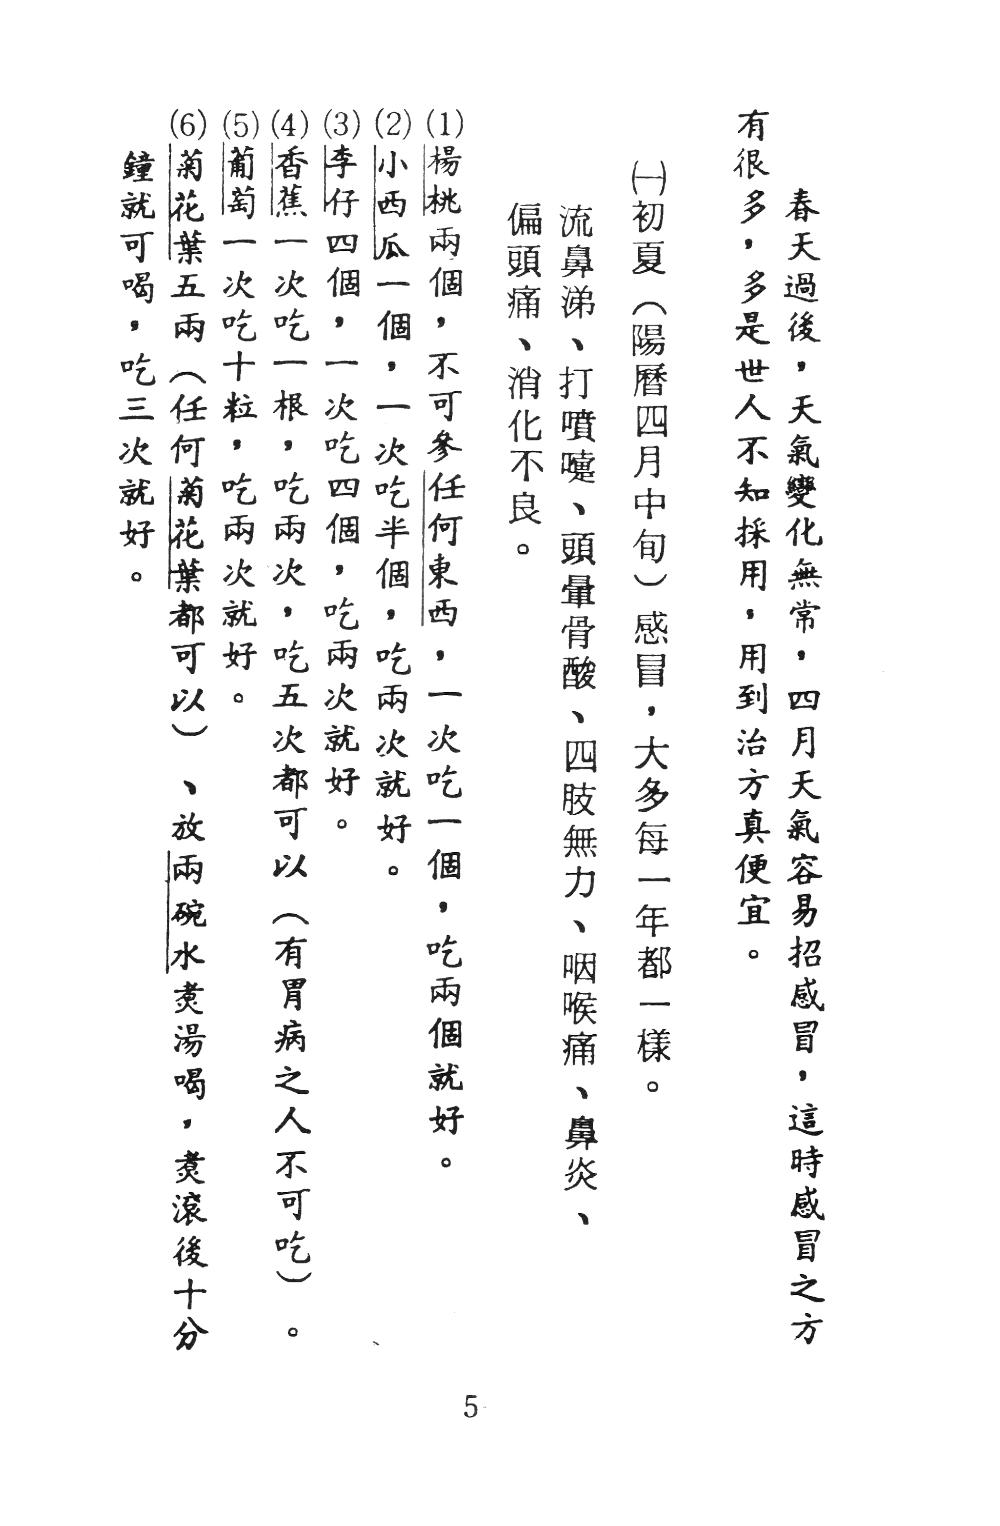 春天過後，天氣變化無常，四月天氣容易招感冒，這時感冒之方
有很多，多是世人不知採用，用到治方真便宜。
㈠初夏（陽曆四月中旬）感冒，大多每一年都一樣。
流鼻涕、打噴嚏、頭暈骨酸、四肢無力、咽喉痛、鼻炎、
偏頭痛、消化不良。
(1)楊桃兩個，不可參任何東西，一次吃一個，吃兩個就好。
(2)小西瓜一個，一次吃半個，吃兩次就好。
(3)李仔四個，一次吃四個，吃兩次就好。
(4)香蕉一次吃一根，吃兩次，吃五次都可以（有胃病之人不可吃）。
(5)葡萄一次吃十粒，吃兩次就好。
(6)菊花葉五兩（任何菊花葉都可以）、放兩碗水煮湯喝，煮滾後十分
鐘就可喝，吃三次就好。
5